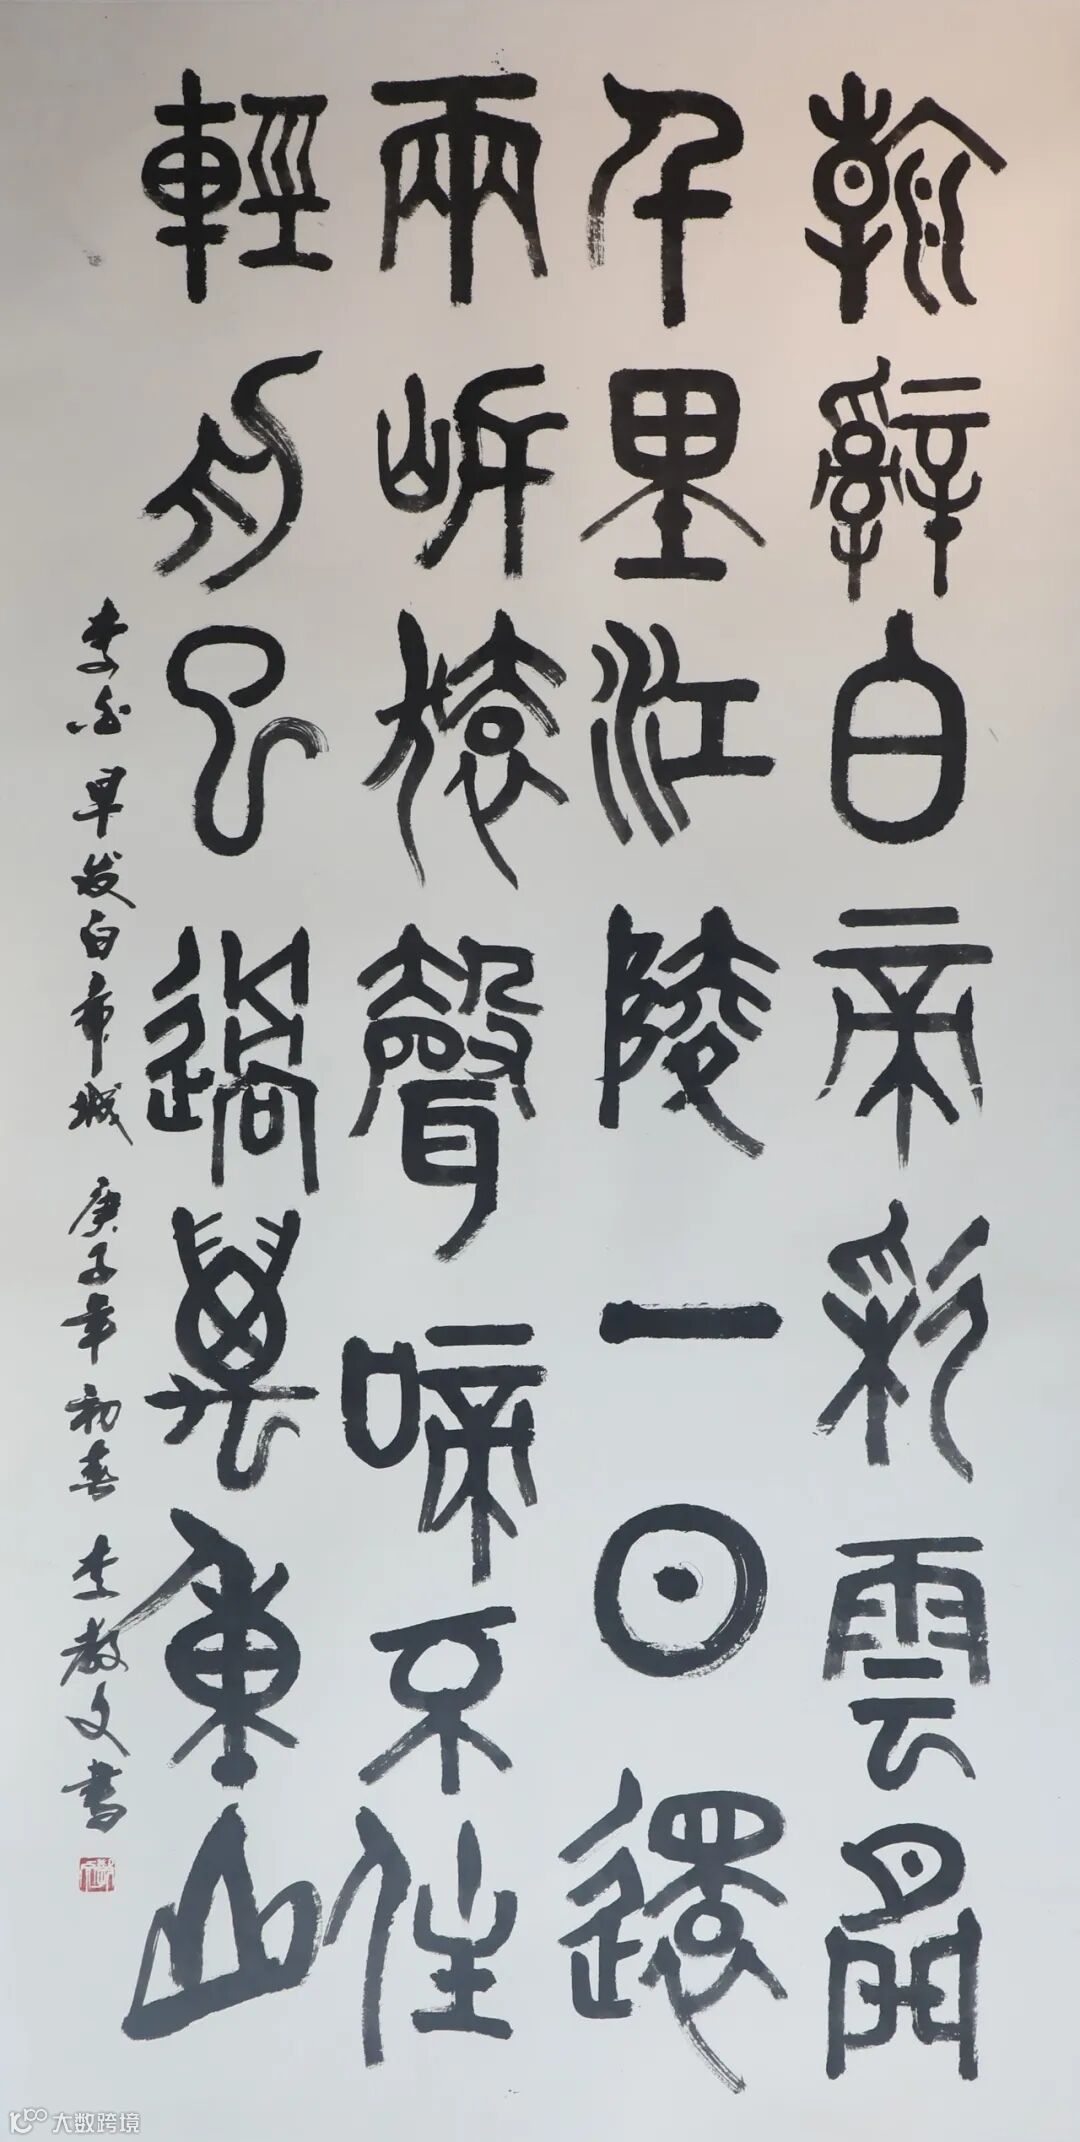 朝辭白帝彩雲間
千里江陵一日還
兩岸猿聲啼不住
輕舟已過萬重山
李白 早发白帝城 庚子年初春 李教文書
大数跨境